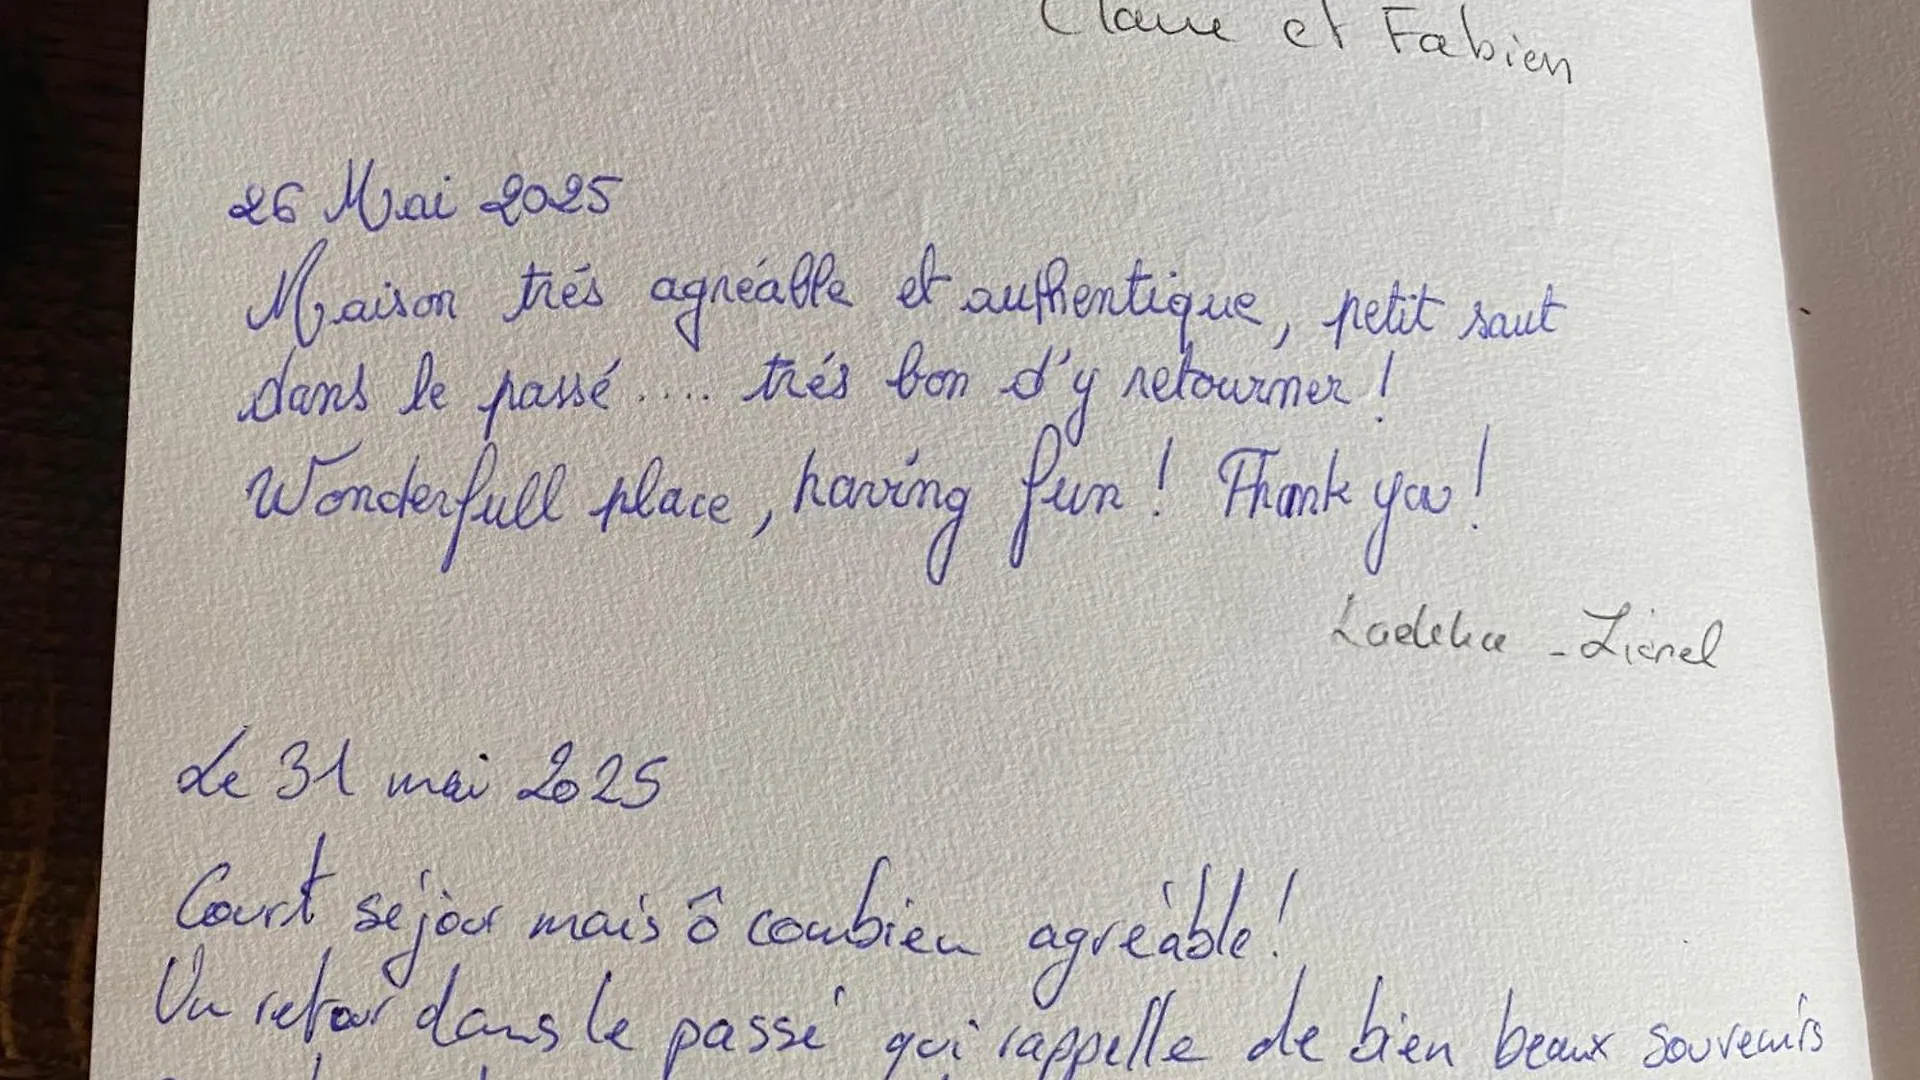 et Fabien
26 Mai 2025
Maison trés agréable et authentique, petit saut
dans le passé.... trés bon d'y retourner !
Wonderfull place, having fun ! Thank you !
- Lionel
Le 31 mai 2025
Court séjour mais ô combien agréable !
Un retour dans le passé qui rappelle de bien beaux souvenirs